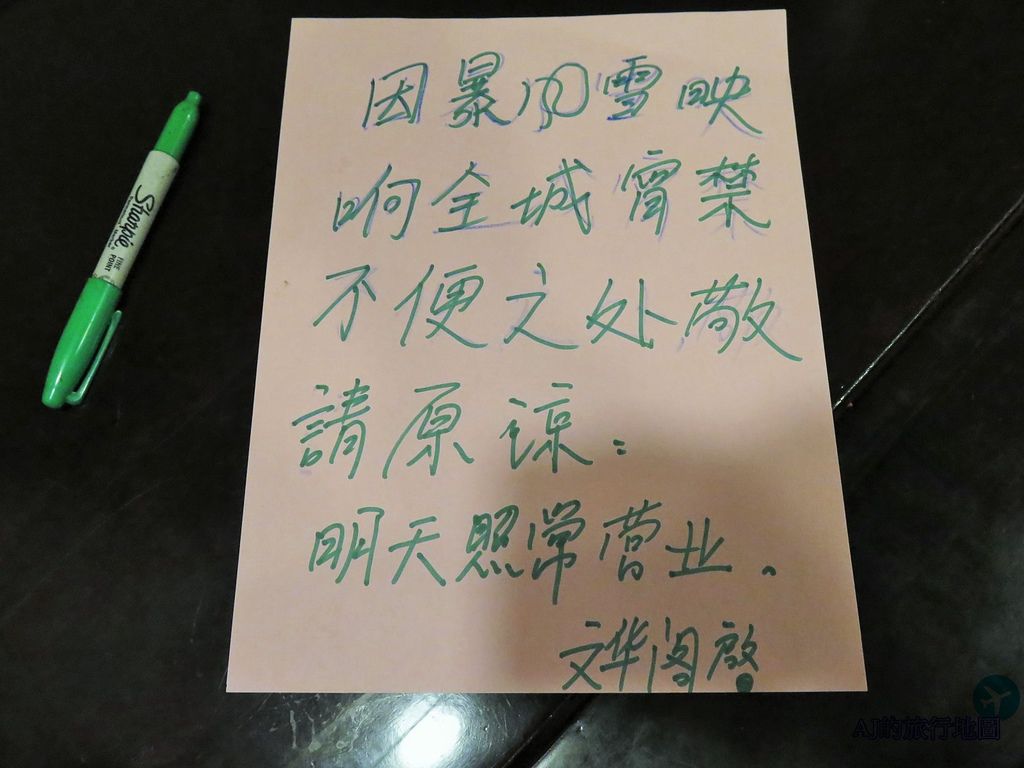 因暴风雪映
响全城宵禁
不便之处敬
請原谅：
明天照常营业。
文华阁啟
Sharpie
FINE
POINT
AJ的旅行地圖